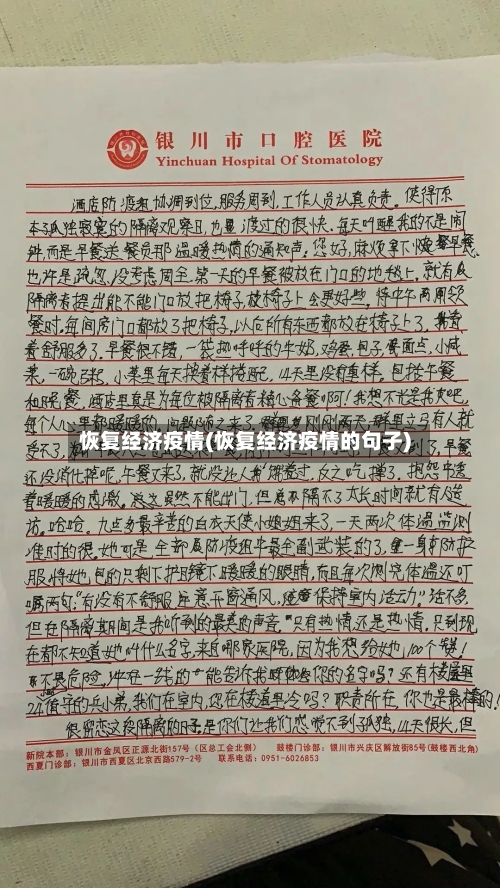 银川市口腔医院
Yinchuan Hospital Of Stomatology
酒店防疫组协调到位,服务周到,工作人员认真负责。使得原
本孤独寂寞的隔离观察日,也度过的很快。每天叫醒我的不是闹
钟,而是早餐送餐员那温暖热情的通知声:您好,麻烦拿下早餐。
也许是疏忽,没考虑周全,第一天的早餐被放在门口的地毯上,就有
隔离者提出能不能门口放把椅子,放椅子上会更好些。待中午再用
餐时,每间房门口都放了把椅子,以后所有东西都放在椅子上了,
着舒服多了。早餐很不错,一袋热呼呼的牛奶,鸡蛋,包子,餐面点,小咸
菜,一碗,小菜里每天换着样搭配,14天里没有重样。包括午餐
和晚餐,酒店里真是为每位被隔离者精心备餐啊!我想不光是我吃吧,
每个人心里都暖暖的。
受不了
恢复经济疫情(恢复经济疫情的句子)
还没消化掉呢,午餐又来了,就没让人
着暖暖的感激。虽然不能出门,但离不隔不了太长时间就有人造
访。哈哈。九点多最辛苦的白衣天使小姐姐来了,一天两次体温监测
准时的很。她可是全部防疫组中最全副武装的了,一身防护
服将她包的只剩下护目镜下暖暖的眼睛,而且每次测完体温还叮
嘱两句:"有没有不舒服,注意开窗通风,适度保持室内活动"话不多,
但在隔离期间是我听到的最美的声音。只有热情还是热情。只到现
在都不知道她叫什么名字,来自哪家医院,因为我想给她100个赞!
不畏危险,冲在一线的"能告诉我
24值守的兵小弟,我们在室内,您在楼道里冷吗?职责所在,你也是最棒的!
很留恋这段隔离的日子,是你们让我们感觉不到孤独,14天很长,但
新院本部:银川市金凤区正源北街157号(区总工会北侧) 鼓楼门诊部:银川市兴庆区解放街85号(鼓楼西北角)
西夏门诊部:银川市西夏区北京西路579-2号 联系电话:0951-6026853